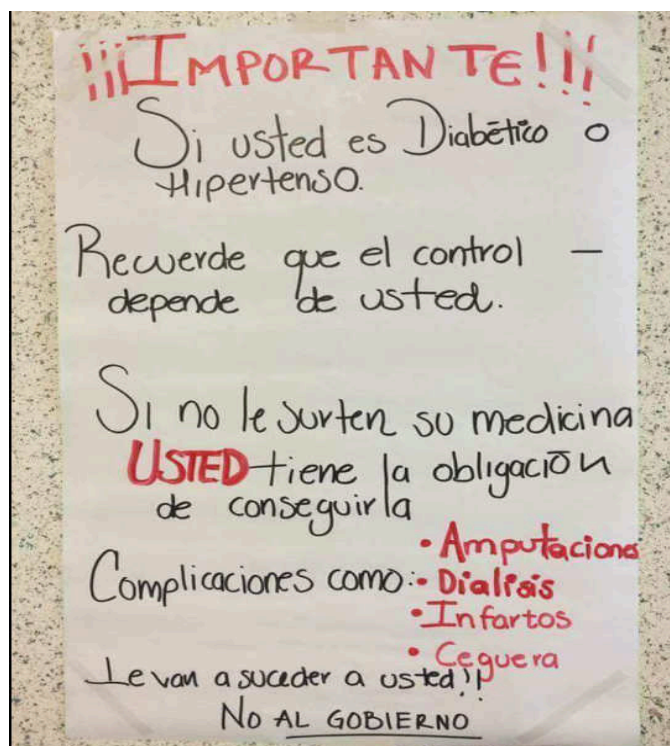 ¡¡¡IMPORTANTE!!!
Si usted es Diabético o
Hipertenso.
Recuerde que el control —
depende de usted.
Si no le surten su medicina
USTED tiene la obligación
de conseguirla
• Amputaciones
Complicaciones como: • Dialisis
• Infartos
• Ceguera
Le van a suceder a usted!!
NO AL GOBIERNO